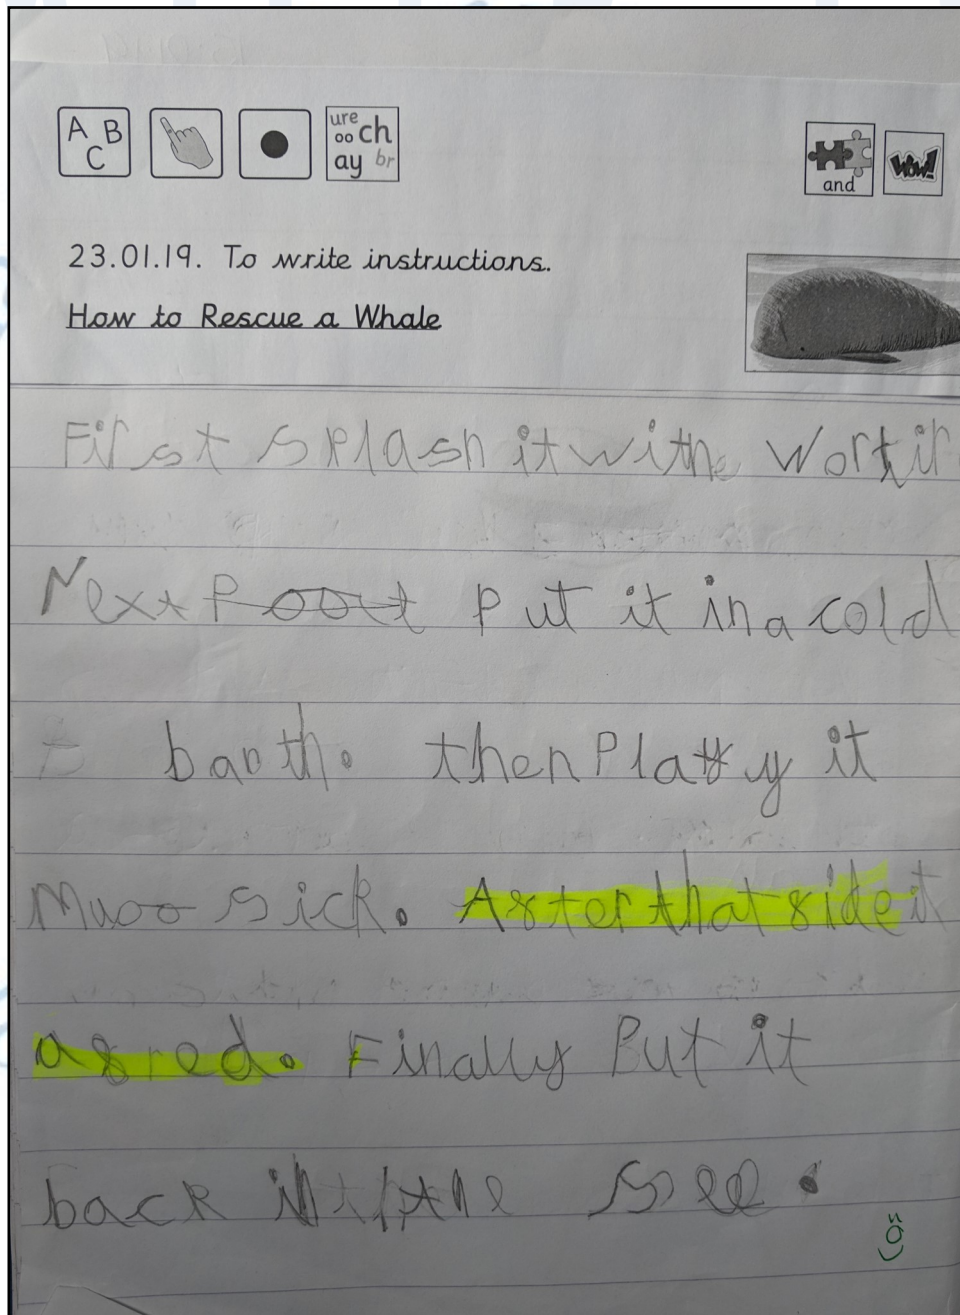 A B
C
ure
oo ch
ay br
and
Wow!
23.01.19. To write instructions.
How to Rescue a Whale
First splash it with wortir
Next Poout Put it in a cold
barth. then Play it
Muoo sick. After that fide it
a fred. Finally Put it
back in the see.